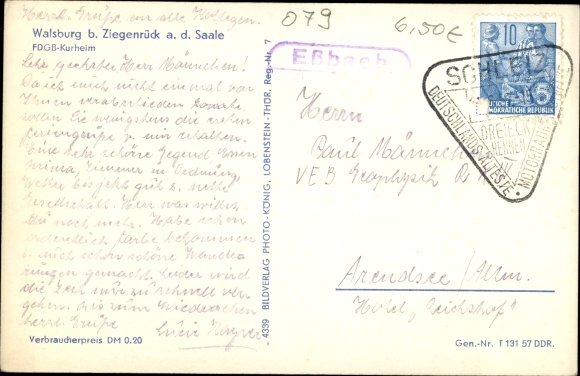 Herzl. Grüße an alle Kollegen.
079
6,50€
Walsburg b. Ziegenrück a. d. Saale
FDGB-Kurheim
Sehr geehrter Herr Männchen!
Da ich mich nicht einmal von
Ihnen verabschieden konnte
sollen Sie wenigstens die ersten
Feriengrüße v. mir erhalten.
Eine sehr schöne Gegend, Essen
prima, Zimmer in Ordnung,
Wetter bis jetzt gut u. nette
Gesellschaft. Herz was willst
du noch mehr. Habe schon
ordentlich Farbe bekommen
u. auch schon schöne Wande-
rungen gemacht. Leider wird
die Zeit nur zu schnell ver-
gehen. Bis zum Wiedersehen
herzl. Grüße
Verbraucherpreis DM 0.20
4339 BILDVERLAG PHOTO-KÖNIG, LOBENSTEIN-THÜR. Reg.-Nr. 7
Eßbach
10
DEUTSCHE
DEMOKRATISCHE REPUBLIK
SCHLEIZ
DREIECK
RENNEN
DEUTSCHLANDS ÄLTESTE
Herrn
Paul Männchen
VEB Geophysik
Arendsee/Altm.
Hotel „Reichshof"
Gen.-Nr. T 131 57 DDR.